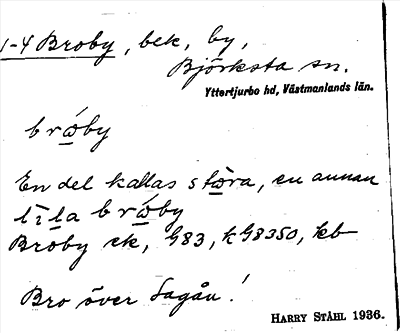 1-4 Broby, bek, by,
Björksta sn.
Yttertjurbo hd, Västmanlands län.
brώby
En del kallas stὼra, en annan
lìla brώby
Broby ek, G83, kG8350, kb
Bro över Sagån!
HARRY STÅHL 1936.